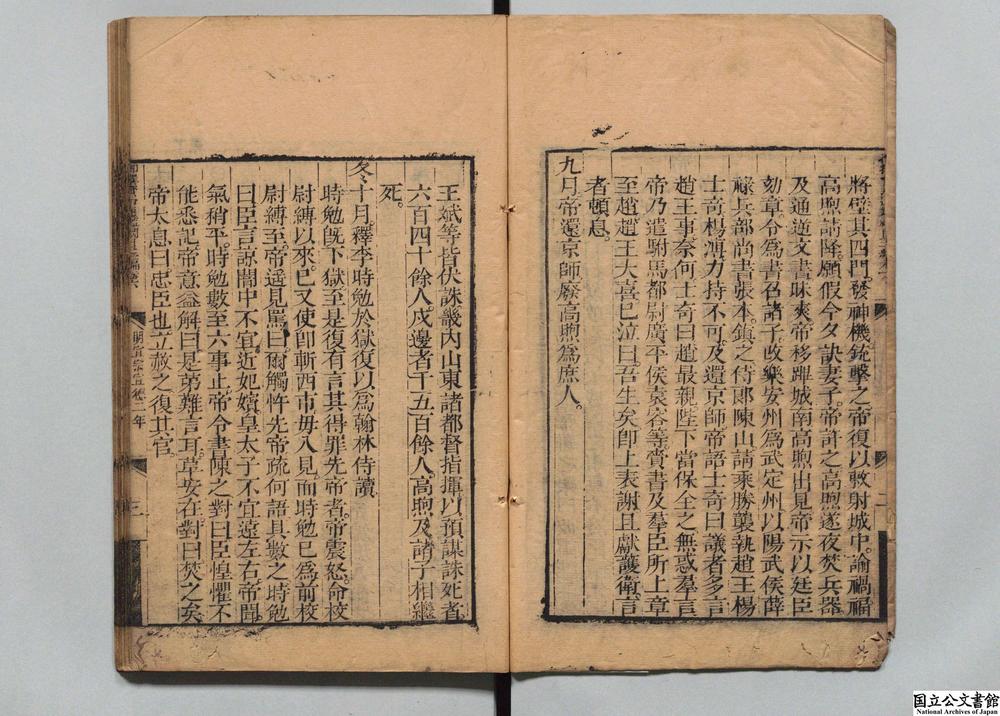 將壁其四門發神機銃擊之帝復以敕射城中諭禍福
高煦請降願假今夕訣妻子帝許之高煦遂夜焚兵器
及通逆文書昧爽帝移蹕城南高煦出見帝示以廷臣
劾章令爲書召諸子改樂安州爲武定州以陽武侯薛
祿兵部尚書張本鎮之侍郎陳山請乘勝襲執趙王楊
士奇楊溥力持不可及還京師帝語士奇曰議者多言
趙王事奈何士奇曰趙最親陛下當保全之無惑羣言
帝乃遣駙馬都尉廣平侯袁容等賫書及羣臣所上章
至趙趙王大喜巳泣曰吾生矣卽上表謝且獻護衛言
者頓息
九月帝還京師廢高煦爲庶人
二
王斌等皆伏誅畿內山東諸都督指揮以預謀誅死者
六百四十餘人戍邊者千五百餘人高煦及諸子相繼
死
冬十月釋李時勉於獄復以爲翰林侍讀
時勉旣下獄至是復有言其得罪先帝者帝震怒命校
尉縛以來巳又使卽斬西市毋入見而時勉巳爲前校
尉縛至帝遥見罵曰爾觸忤先帝疏何語具數之時勉
曰臣言諒闇中不宜近妃嬪皇太子不宜遠左右帝聞
氣稍平時勉數至六事止帝令書陳之對曰臣惶懼不
能悉記帝意益解曰是第難言耳草安在對曰焚之矣
帝大息曰忠臣也立赦之復其官
明宣宗宣德二年
三
国立公文書館
National Archives of Japan